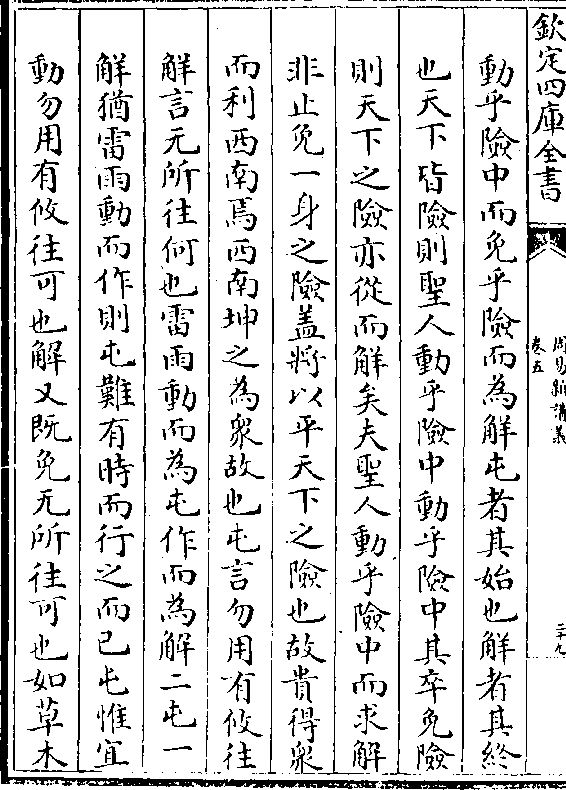 欽定四庫全書
周易新講義
卷五
二十九
動乎險中而免乎險而為解屯者其始也解者其終
也天下皆險則聖人動乎險中動乎險中其卒免險
則天下之險亦從而解矣夫聖人動乎險中而求解
非止免一身之險蓋將以平天下之險也故貴得衆
而利西南焉西南坤之為衆故也屯言勿用有攸往
解言无所往何也雷雨動而為屯作而為解二屯一
解猶雷雨動而作則屯難有時而行之而已屯惟宜
動勿用有攸往可也解又既免无所往可也如草木